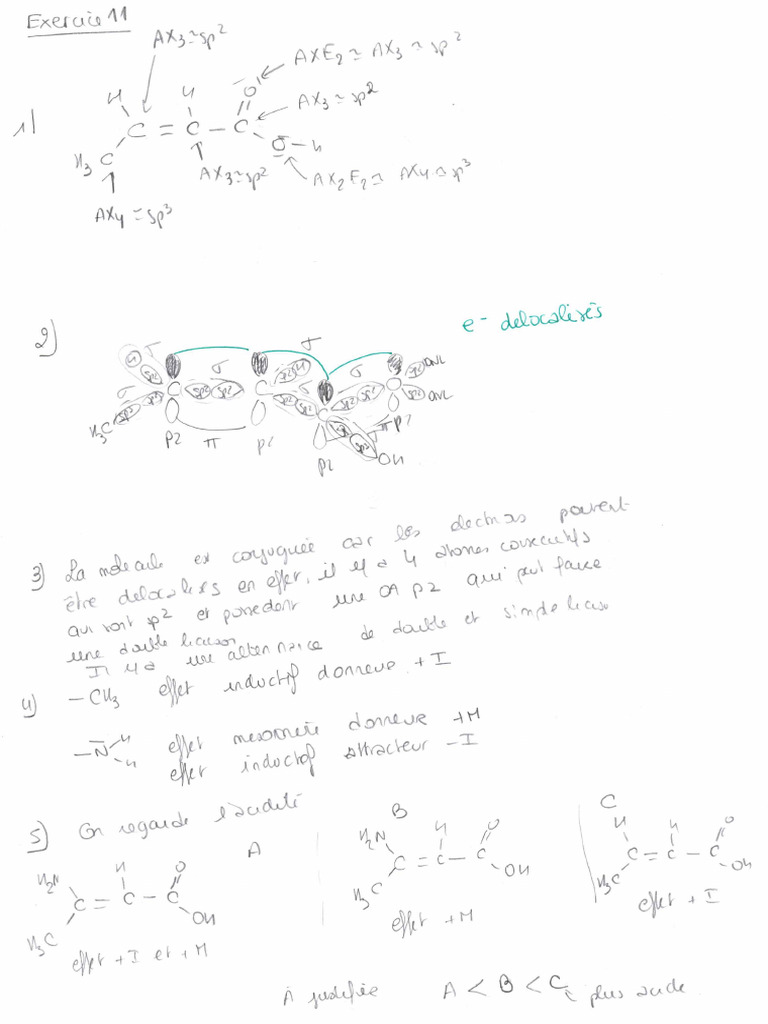 Exercice 11
AX3 ≃ sp²
AXE2 ≃ AX3 ≃ sp²
H H O
AX3 ≃ sp²
1) C = C - C
O - H
H3C
AX3 ≃ sp²
AX2E2 ≃ AX4 ≃ sp³
AX4 ≃ sp³
e- delocalisés
2)
σ σ
H sp² sp² H sp² DNL
σ σ σ
C sp² sp² C sp² sp² C sp² DNL
H3C sp³ sp² C
pz π pz π pz
sp³ OH
pz
3) La molécule est conjuguée car les électrons peuvent
être delocalisés en effet, il y a 4 atomes consecutifs
qui sont sp² et possedent une OA pz qui peut faire
une double liaison
Il y a une alternance de double et simple liaison
4) - CH3 effet inductif donneur + I
- N H effet mesomère donneur +M
H effet inductif attracteur - I
5) On regarde l'acidité
A
H2N H O
C = C - C
H3C OH
effet + I et + M
B
H2N H O
C = C - C
H3C OH
effet + M
C
H H O
C = C - C
H3C OH
effet + I
A justifié A < B < C plus acide